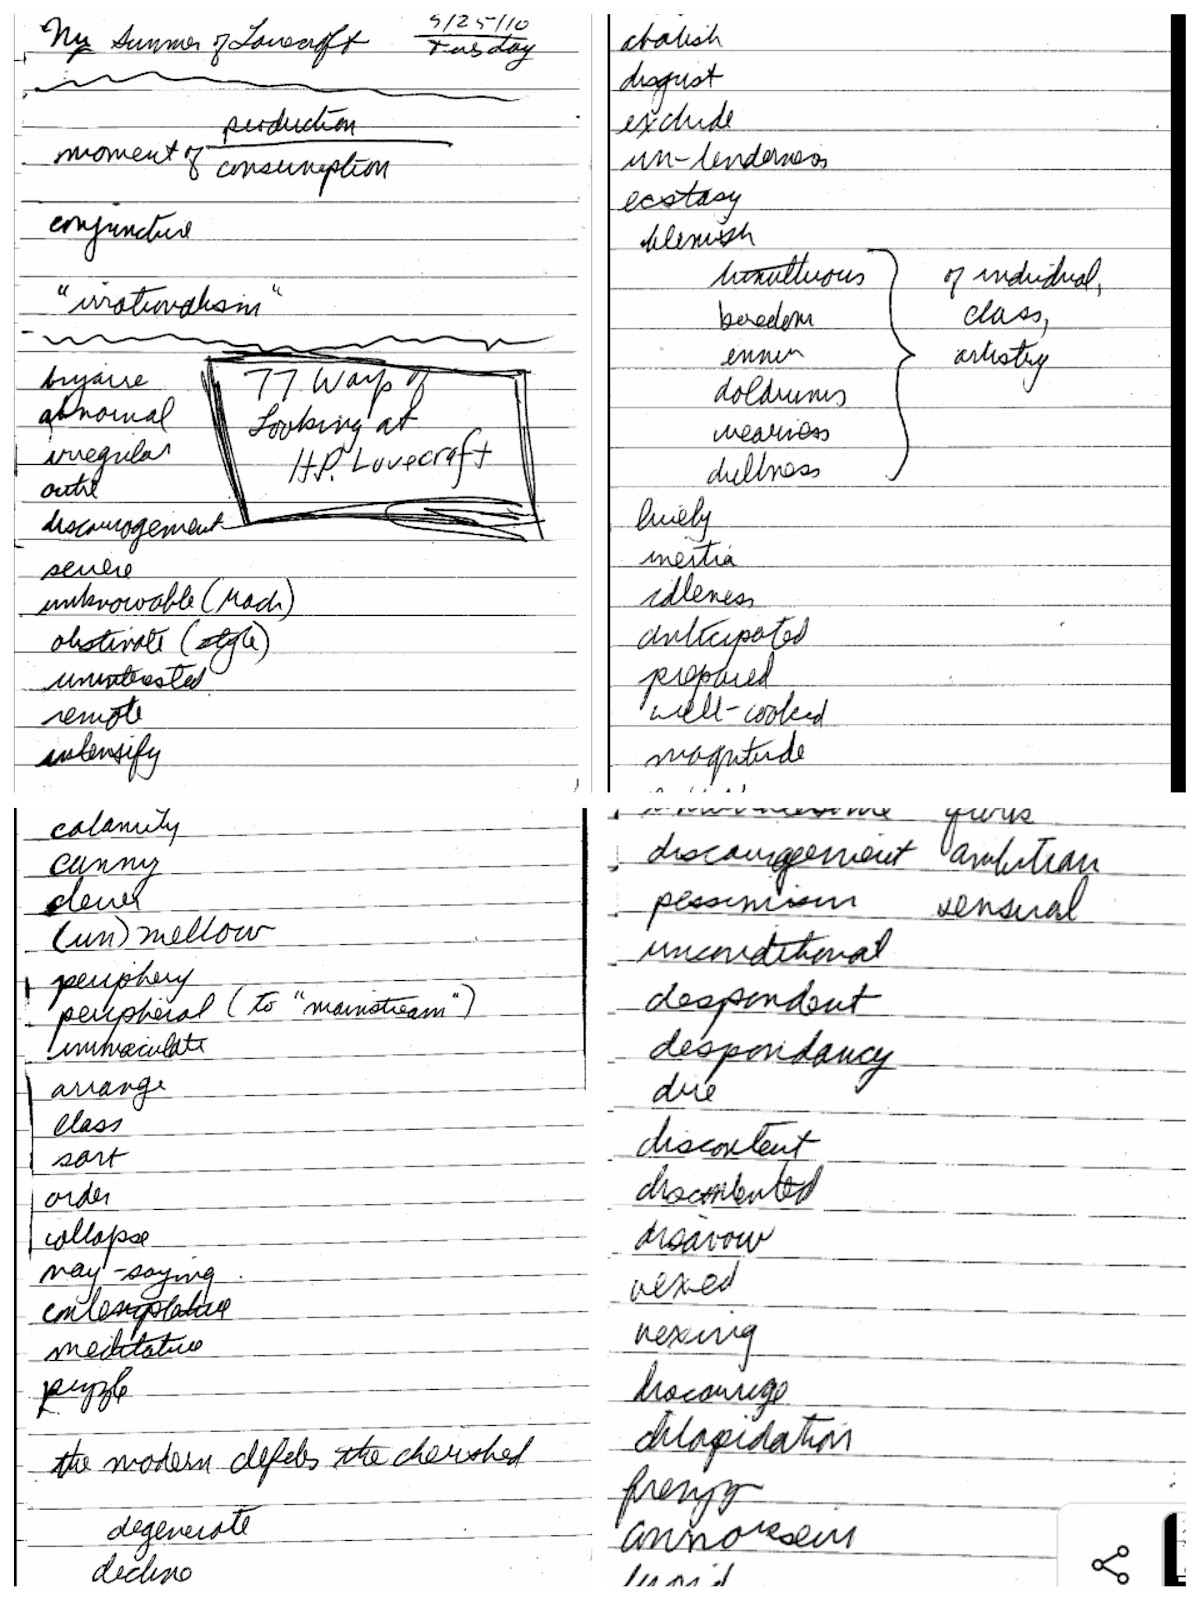 My Summer of Lovecraft
5/25/10
Tuesday
production
moment of
consumption
conjuncture
"irrationalism"
bizarre
abnormal
irregular
outre
discouragement
severe
unknowable (Mach)
obstinate (style)
uninterested
remote
intensify
77 Ways of
Looking at
H.P. Lovecraft
abolish
disgust
exclude
un-tenderness
ecstasy
blemish
tumultuous
boredom
ennui
doldrums
weariness
dullness
of individual,
class,
artistry
inertia
idleness
anticipated
prepared
well-cooked
magnitude
calamity
canny
clever
(un)mellow
periphery
peripheral (to "mainstream")
immaculate
arrange
class
sort
order
collapse
nay-saying
contemplative
meditative
puzzle
the modern defiles the cherished
degenerate
decline
discouragement ambition
pessimism sensual
unconditional
despondent
despondancy
due
discontent
discontented
disavow
vexed
vexing
discourage
dilapidation
frenzy
connoisseur